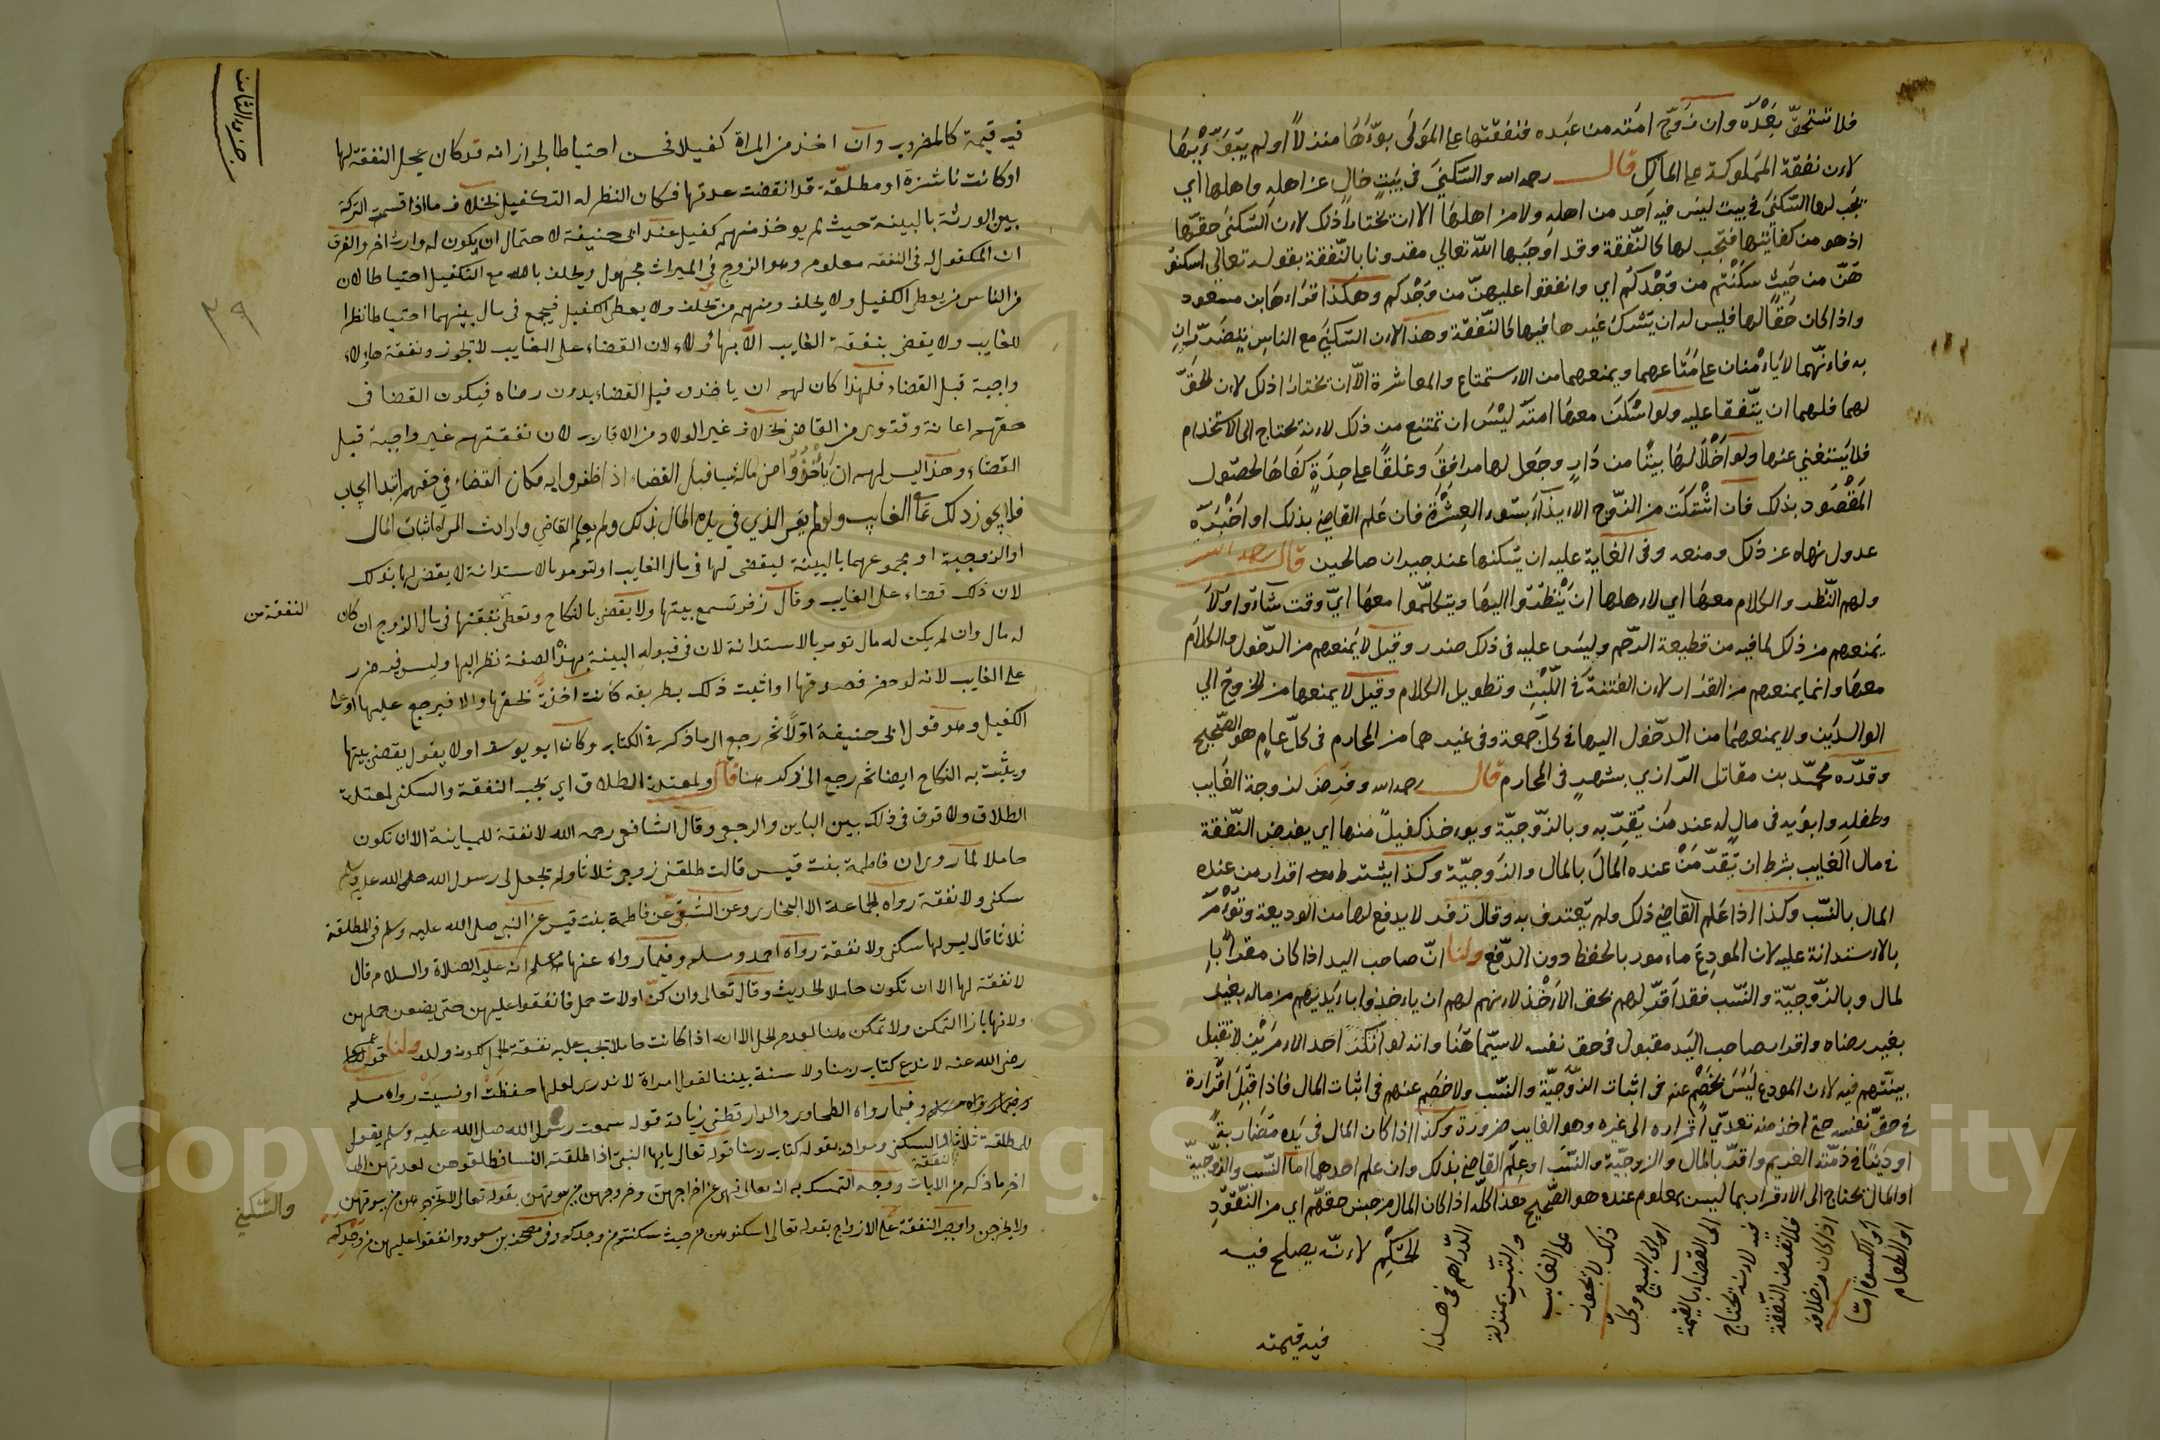 فلا تستحق بعده وان زوج امته من عبده فنفقتها على المولى بوّأها منزلا اولم يبوئها
لان نفقة المملوكة على المالك قال رحمه الله والسكنى في بيت خال عن اهله واهلها اي
تجب لها السكنى في بيت ليس فيه احد من اهله ولا من اهلها الا ان تختار ذلك لان السكنى حقها
اذ هو من كفايتها فتجب لها كالنفقة وقد اوجبها الله تعالي مقرونا بالنفقة بقوله تعالي اسكنو
هن من حيث سكنتم من وجدكم اي وانفقوا عليهن من وجدكم وهكذا قراءها ابن مسعود
واذا كان حقا لها فليس له ان يشرك غيرها فيها كالنفقة وهذا لان السكنى مع الناس يتضرران
به فانهما لا يامنان على متاعهما ويمنعهما من الاستمتاع والمعاشرة الا ان يختارا ذلك لان الحق
لهما فلهما ان يتفقا عليه ولو اسكن معها امته ليس ان تمتنع من ذلك لانه يحتاج الى الاستخدام
فلا يستغني عنها ولو اخلا لها بيتا من دار وجعل لها مرافق وغلقا على حدة كفاها لحصول
المقصود بذلك فان اشتكت من الزوج الايذاء بسوء العشرة فان علم القاضي بذلك او اخبره
عدول نهاه عن ذلك ومنعه وفي الغاية عليه ان يسكنها عند جيران صالحين قال رحمه الله
ولهم النظر والكلام معها اي لاهلها ان ينظروا اليها ويتكلموا معها اي وقت شاءوا ولا
يمنعهم من ذلك لما فيه من قطيعة الرحم وليس عليه في ذلك ضرر وقيل لا يمنعهم من الدخول والكلام
معها وانما يمنعهم من القرار لان الفتنة في اللبث وتطويل الكلام وقيل لا يمنعها من الخروج الي
الوالدين ولا يمنعهما من الدخول اليها في كل جمعة وفي غيرهما من المحارم في كل عام هو الصحيح
وقدره محمد بن مقاتل الرازي بشهر في المحارم قال رحمه الله وفرض لزوجة الغايب
وطفله وابويه في مال له عند من يقر به وبالزوجية ويوخذ كفيل منها اي يفرض النفقة
في مال الغايب بشرط ان يقر من عنده المال بالمال والزوجية وكذا يشترط اقرار من عنده
المال بالنسب وكذا اذا علم القاضي ذلك ولم يعترف به وقال زفر لا يدفع لها من الوديعة وتؤمر
بالاستدانة عليه لان المودع مامور بالحفظ دون الدفع ولنا ان صاحب اليد اذا كان مقرا با
لمال وبالزوجية والنسب فقد اقر لهم بحق الاخذ لانهم لهم ان ياخذوا بايديهم من ماله بغير
بغير رضاه واقرار صاحب اليد مقبول في حق نفسه لا سيما هنا وانه لو انكر احد الامرين لا تقبل
بينتهم فيه لان المودع ليس بخصم عنه في اثبات الزوجية والنسب ولا خصم عنهم في اثبات المال فاذا قبل اقراره
في حق نفسه حتى اخذ منه تعدى اقراره الى غيره وهو الغايب ضرورة وكذا اذا كان المال في يده مضاربة
او دينا في ذمته الغريم واقر بالمال والزوجية والنسب او علم القاضي بذلك وان علم احدهما اما النسب والزوجية
او المال يحتاج الى الاقرار بما ليس بمعلوم عنده هو الصحيح هذا كله اذا كان المال من جنس حقهم اي من النقود
او الطعام
او الكسوة اما
اذا كان من خلافه
فلا تفرض النفقة
فيه لانه يحتاج
الى القضاء بالقيمة
او الى البيع وكل
ذلك لا يجوز
على الغايب
والتبر بمنزلة
الدراهم في هذا
الحكم لانه يصلح فيه
فيه قيمته
جزو الثامن
٢٩
فيه قيمة كالمضروب وان اخذ من المراة كفيلا فحسن احتياطا لجواز انه قد كان عجل النفقة لها
او كانت ناشزة او مطلقة قد انقضت عدتها فكان النظر له التكفيل بخلاف ما اذا قسمت التركة
بين الورثة بالبينة حيث لم يوخذ منهم كفيل عند ابي حنيفة لاحتمال ان يكون له وارث اخر والفرق
ان المكفول له في النفقه معلوم وهو الزوج في الميراث مجهول ويحلف بالله مع التكفيل احتياطا لان
من الناس من يعطى الكفيل ولا يحلف ومنهم من يحلف ولا يعطى الكفيل فيجمع في مال بينهما احتياطا نظرا
للغايب ولا يقضى بنفقة الغايب الا بهاؤلاء لان القضاء على الغايب لا تجوز ونفقة هاولاء
واجبة قبل القضاء فلهذا كان لهم ان ياخذوه قبل القضاء بدون رضاه فيكون القضا في
حقهم اعانة وفتوى من القاضي بخلاف غير الولاد من الاقارب لان نفقتهم غير واجبة قبل
القضاء وهذا ليس لهم ان ياخذوا من ماله شيا قبل القضاء اذ اظفروا به فكان القضاء في حقهم ابتدا ايجاب
فلا يجوز ذلك على الغايب ولو لم يقر الذي في يده المال بذلك ولم يعلم القاضي وارادت المراة اثبات المال
او الزوجية او مجموعهما بالبينة ليقضى لها في مال الغايب او لتومر بالاستدانة لا يقضى لها بذلك
لان ذلك قضاء على الغايب وقال زفر تسمع بينتها ولا يقضى بالنكاح وتعطى نفقتها في مال الزوج ان كان
النفقة من
له مال وان لم يكن له مال تومر بالاستدانة لان في قبوله البينة بهذا الصفة نظر اليها وليس فيه ضرر
على الغايب لانه لو حضر فصدقها او اثبتت ذلك بطريقه كانت اخذة لحقها والا فيرجع عليها او على
الكفيل وهو قول ابي حنيفة اولا ثم رجع الى ما ذكر في الكتاب وكان ابو يوسف اولا يقول يقضى بينتها
ويثبت به النكاح ايضا ثم رجع الى ذكر هنا قال ولمعتدة الطلاق اي تجب النفقة والسكنى لمعتدة
الطلاق ولا فرق في ذلك بين الباين والرجعي وقال الشافعي رحمه الله لا نفقة للمباينة الا ان تكون
حاملا لما روى ان فاطمة بنت قيس قالت طلقني زوجي ثلاثا ولم تجعل لي رسول الله صلى الله عليه وسلم
سكنى ولا نفقة رواه الجماعة الا البخاري وعن الشعبي عن فاطمة بنت قيس عن النبي صلى الله عليه وسلم في المطلقة
ثلاثا قال ليس لها سكنى ولا نفقة رواه احمد ومسلم وفيما رواه عنها مسلم انه عليه الصلاة والسلام قال
لا نفقة لها الا ان تكون حاملا الحديث وقال تعالى وان كن اولات حمل فانفقوا عليهن حتى يضعن حملهن
ولانها بازا التمكن ولا تمكن هنا لعدم الحل الا ان اذا كانت حاملا تجب عليه نفقة الحمل لكونه ولده ولنا قول عمر
رضي الله عنه لا ندع كتاب ربنا ولا سنة نبينا لقول امراة لا ندري لعلها حفظت او نسيت رواه مسلم
وفيما رواه الطحاوي والدارقطني زيادة قوله سمعت رسول الله صلى الله عليه وسلم يقول
للمطلقة ثلاثا السكنى والنفقة ومراده بقوله كتاب ربنا قوله تعالى يايها النبي اذا طلقتم النسا فطلقوهن لعدتهن الى
اخر ما ذكر من الايات ووجه التمسك به انه تعالى نهى عن اخراجهن وخروجهن من بيوتهن بقوله تعالى لا تخرجوهن من بيوتهن
ولا يخرجن واوجب النفقة على الازواج بقوله تعالى اسكنوهن من حيث سكنتم من وجدكم وفي مصحف بن مسعود وانفقوا عليهن من وجدكم
والسكنى